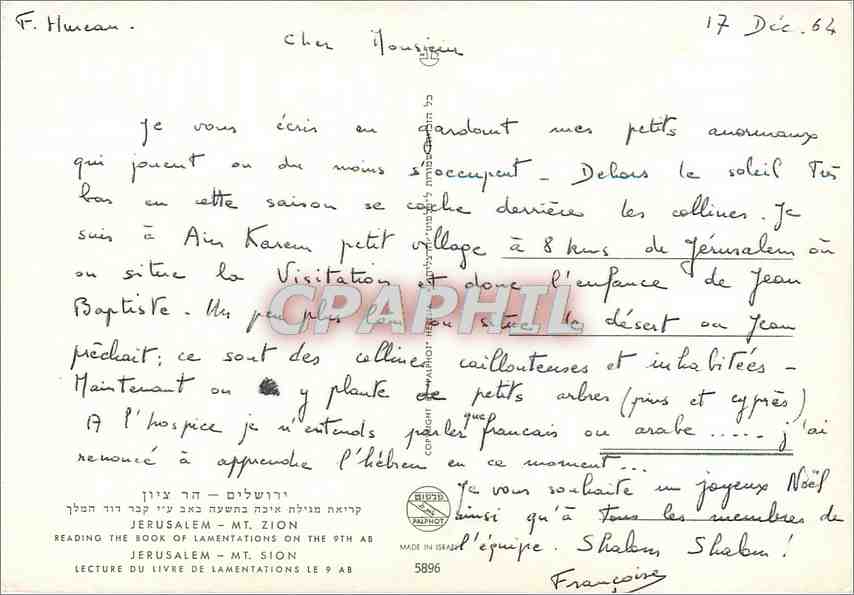 F. Mureau.
17 Déc. 64
Cher Monsieur
Je vous écris en gardant mes petits anormaux
qui jouent ou du moins s'occupent - Dehors le soleil très
bas en cette saison se cache derrière les collines. Je
suis à Ain Karem petit village à 8 kms de Jérusalem où
on situe la Visitation et donc l'enfance de Jean
Baptiste - Un peu plus loin on situe le désert ou Jean
prêchait; ce sont des collines caillouteuses et inhabitées -
Maintenant on y plante de petits arbres (pins et cyprès)
A l'hospice je n'entends parler que francais ou arabe ..... j'ai
renoncé à apprendre l'hébreu en ce moment...
Je vous souhaite un joyeux Noël
ainsi qu'à tous les membres de
l'équipe. Shalom Shalom!
Françoise
ירושלים – הר ציון
קריאת מגילת איכה בתשעה באב ע"י קבר דוד המלך
JERUSALEM – MT. ZION
READING THE BOOK OF LAMENTATIONS ON THE 9TH AB
JERUSALEM – MT. SION
LECTURE DU LIVRE DE LAMENTATIONS LE 9 AB
PALPHOT
MADE IN ISRAEL
5896
COPYRIGHT BY "PALPHOT"
כל הזכויות שמורות
CPAPHIL